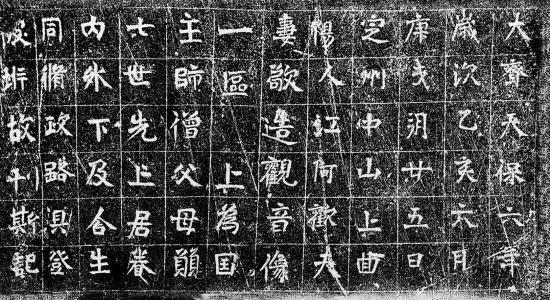 大齊天保六年
歲次乙亥六月
庚戌朔廿五日
定州中山上曲
陽人江阿歡夫
妻歌造觀音像
一區 上為国
主師僧父母願
七世先上居眷
内外下及合生
同脩政路俱登
彼岸故刊斯記